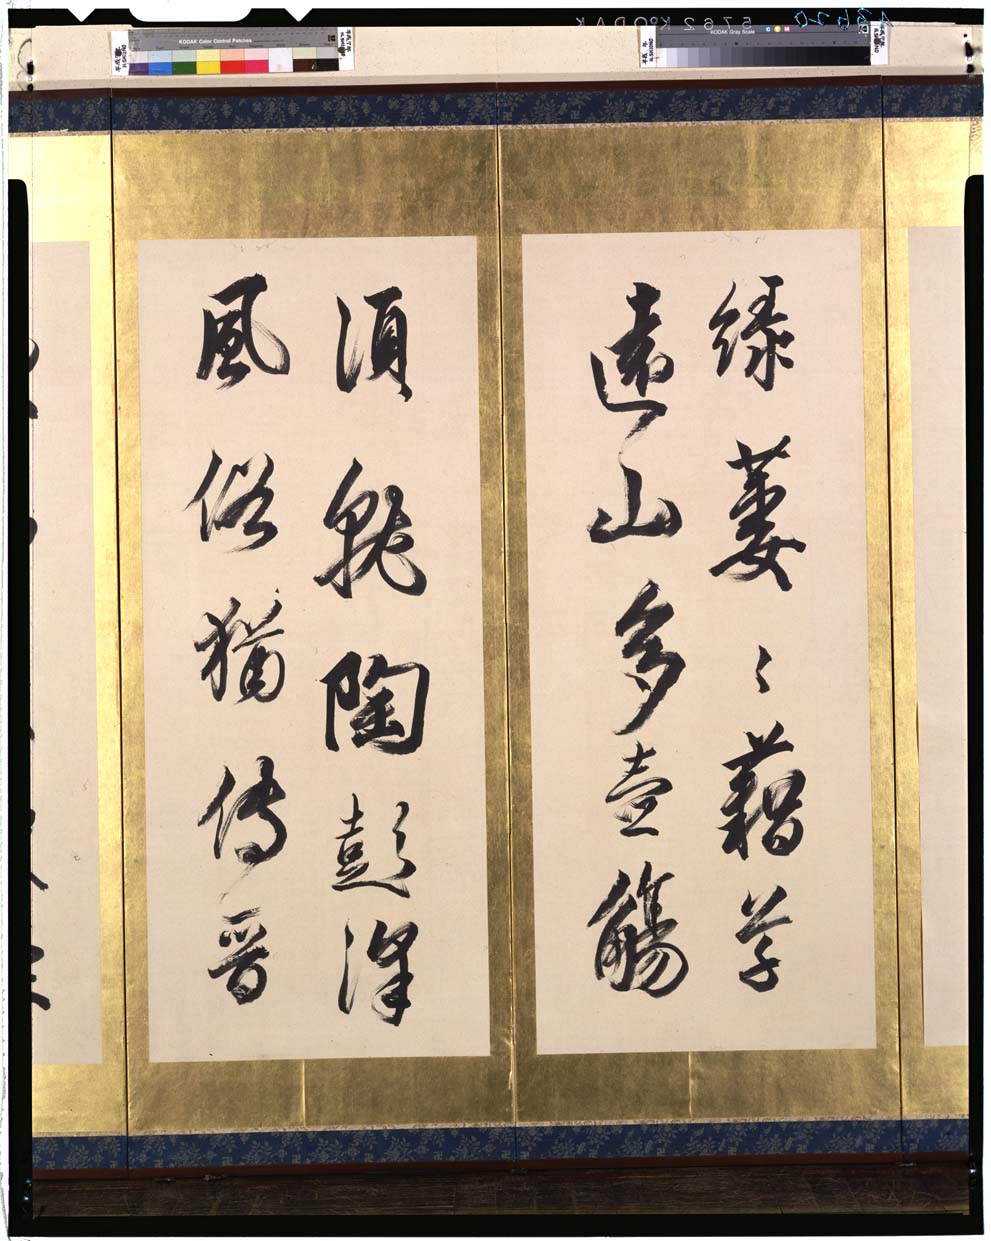 KODAK Color Control Patches
KODAK Gray Scale
KODAK 5762
緑萋〻藉草
遠山多壺觴
須就陶彭澤
風俗猶傳晋